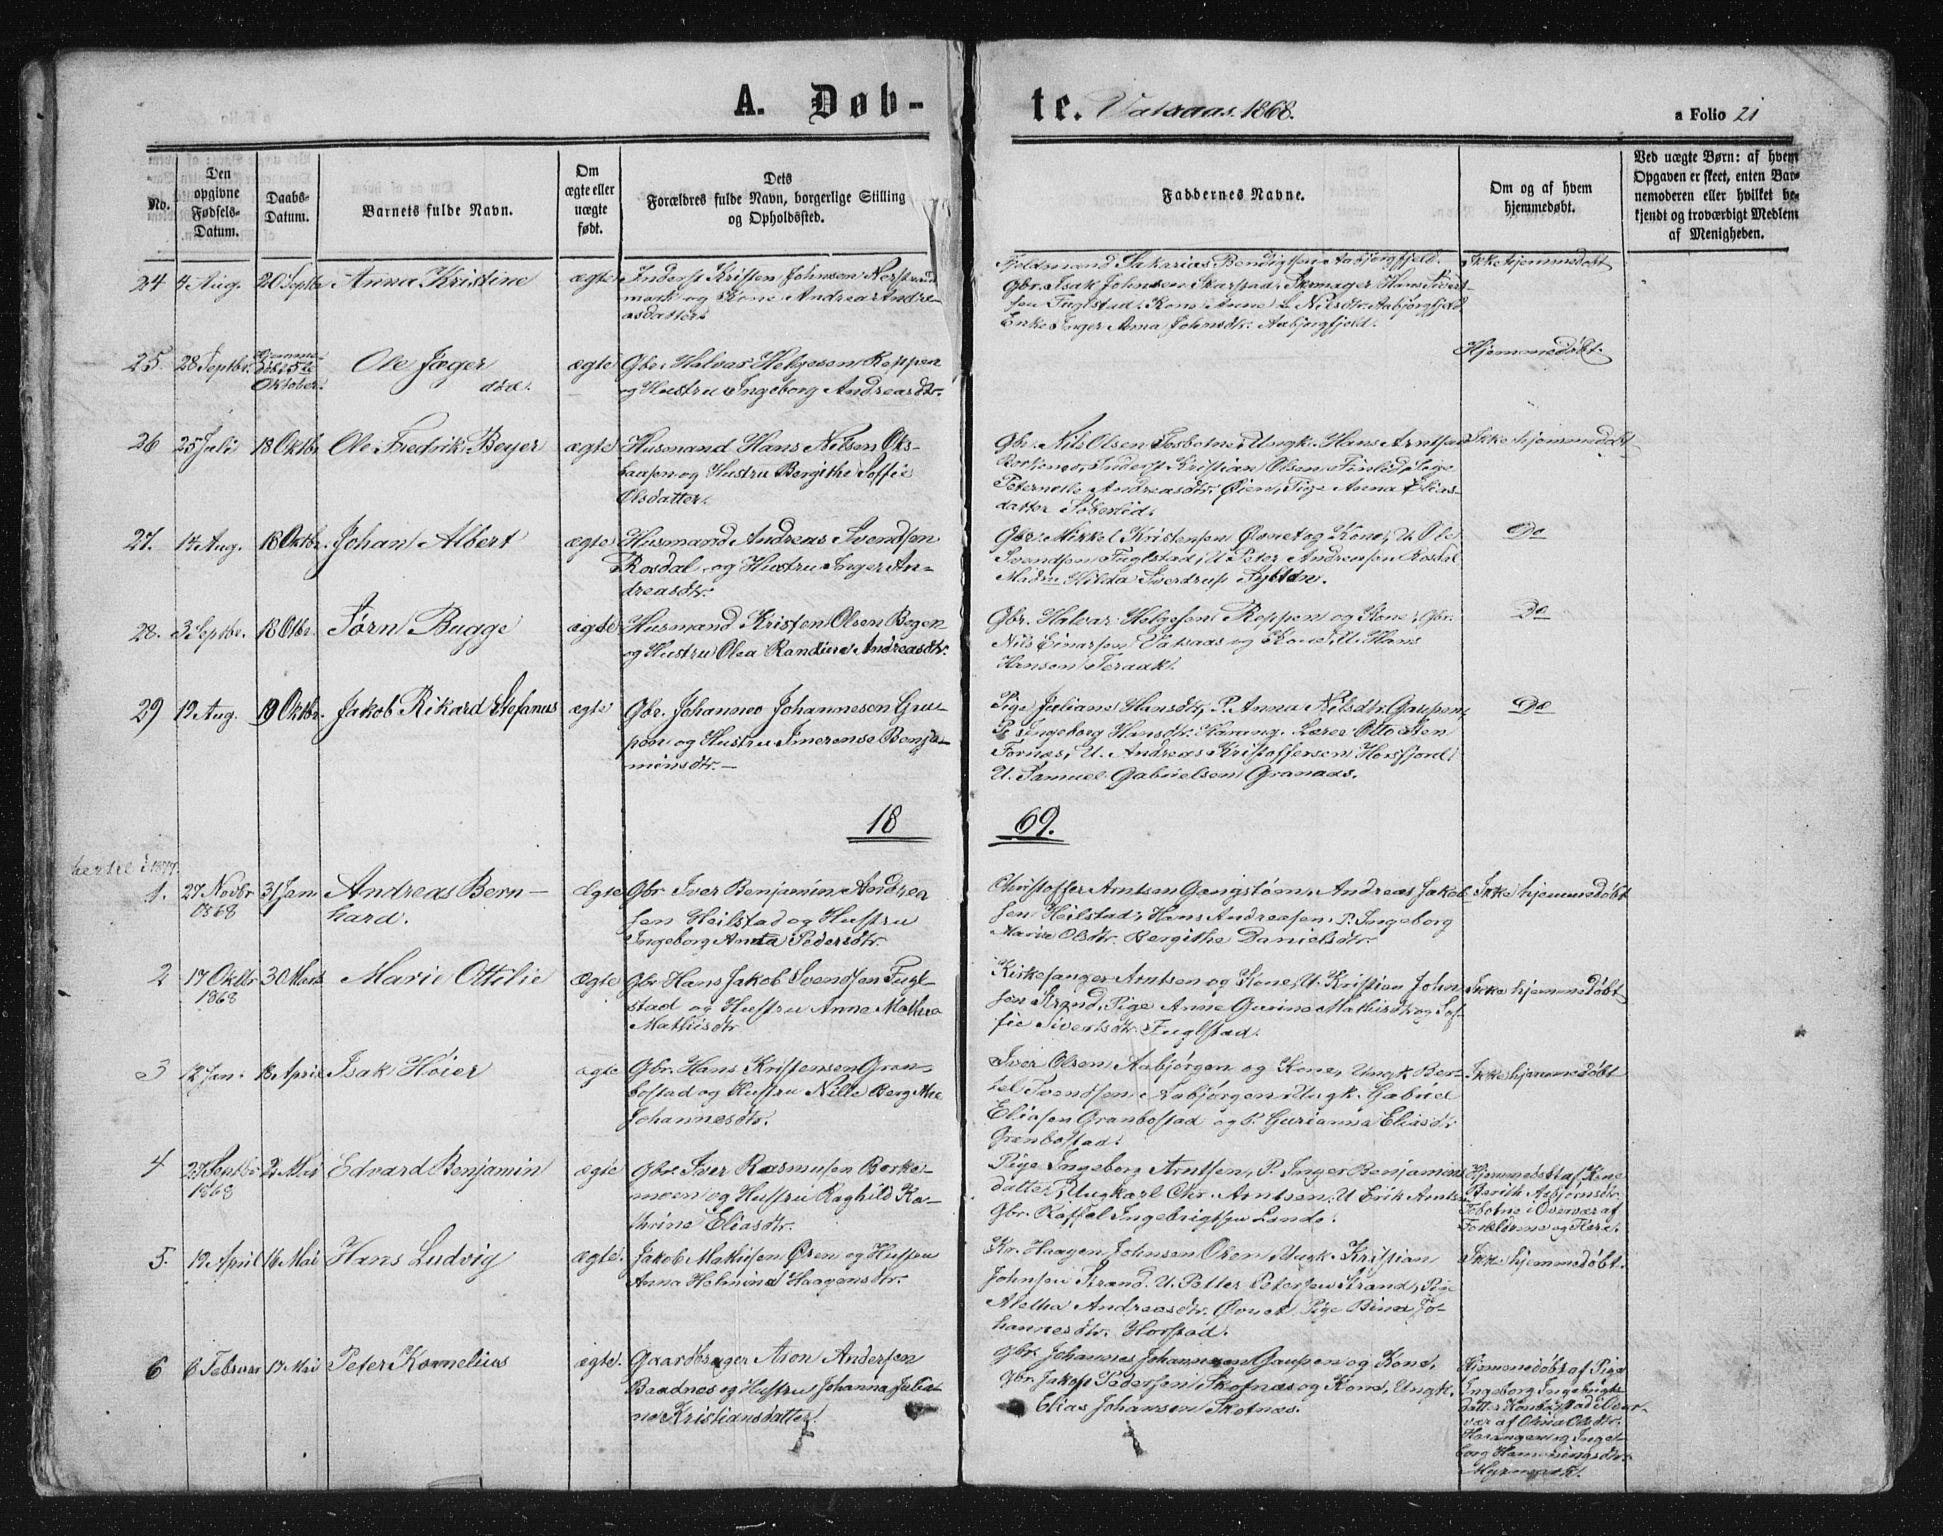 A. Døb-
te. Vatsaas. 1868.
a Folio 21
No.
Den
opgivne
Fødsels-
Datum.
Daabs-
Datum.
Barnets fulde Navn.
Om
ægte eller
uægte
født.
Dets
Forældres fulde Navn, borgerlige Stilling
og Opholdssted.
Faddernes Navne.
Om og af hvem
hjemmedøbt.
Ved uægte Børn: af hvem
Opgaven er skeet, enten Bar-
nemoderen eller hvilket be-
kjendt og troværdigt Medlem
af Menigheden.
24 4 Aug. 20 Septbr Anna Kristine ægte Inderst Kristen Johnsen
mark og Kone Andrea Andre-
asdatter.
Fjeldmand Sakrias Bendigtsen Aabjørgfjeld.
Gbr. Isak Johnsen Skarstad, Skrmager Hans Sivert-
sen Fuglstad, Kone Anne L Nilsdtr. Aabjørgfjeld
Enke Inger Anna Johnsdtr. Aabjørgfjeld.
Ikke hjemmedøbt
25 28 Septbr. Hjemme-
Oktober. Ole Jæger
død. ægte Gbr. Halvar Helgesen Reppen
og Hustru Ingeborg Andreasdtr.
Hjemmedøbt.
26 25 Juli 18 Oktbr. Ole Fredrik Beyer ægte Husmand Hans Nilsen Oks-
baasen og Hustru Bergithe Soffie
Olsdatter.
Gbr. Nils Olsen Fosbotne, Ungk. Hans Arntsen
Inderst Kristian Olsen Finlid, Pige
Peternelle Andreasdtr. Øien, Pige Anna Elias-
datter
Ikke hjemmedøbt
27. 14 Aug. 18 Oktbr. Johan Albert ægte Husmand Andreas Svendsen
Rosdal og Hustru Inger An-
dreasdtr.
Gbr. Mikkel Kristensen Øvret og Kone, U. Ole
Svendsen Fuglstad, U Peter Andreasen Rosdal
Madm Hilda Sverdrup
Do
28. 3 Septbr. 18 Otbr. Jørn Bugge ægte Husmand Kristen Olsen Bogen
og Hustru Olea Randine Andreasdtr.
Gbr. Halvar Helgesen Reppen og Kone, Gbr.
Nils Einarsen Vatsaas og Kone, U. Hans
Hansen Teraak.
Do
29 19 Aug. 19 Oktbr. Jakob Rikard Stefanus ægte Gbr. Johannes Johannesen Gau-
pen og Hustru Imerense Benja-
minsdtr. —
Pige Juliane Hansdtr, P. Anna Nilsdtr. Gaupen,
P. Ingeborg Hansdtr. Harang. Lærer Otto Sten
Fornæs, U. Andreas Kristoffersen Horsfjord,
U. Samuel Gabrielsen Granaas.
Do
18 69.
hertil i 1877.
1. 27 Novbr
1868 31 Jan Andreas Bern-
hard. Ægte Gbr Iver Benjamin Andrea
sen Heilstad og Hustru
Ingeborg Anna Pedersdtr.
Christoffer Arntsen Gangstøm, Andreas Jakob
sen Heilstad, Hans Andreasen, P. Ingeborg
Marie Olsdtr. Bergithe Danielsdtr.
Ikke hjemmedøbt
2 17 Oktbr
1868 30 Marts Marie Ottilie Ægte Gbr Hans Jakob Svendsen Fugl-
stad og Hustru Anne Mathea
Mathisdtr
Kirkesanger Arntsen og Kone, U. Kristian John
sen Strand, Pige Anne Gurine Mathisdtr og Sof-
fie Sivertsdtr. Fuglstad.
Ikke hjemmedøbt
3 12 Jan. 18 April Isak Høier ægte Gbr. Hans Kristensen Gran-
bostad og Hustru Nille Berg Mie
Johannesdtr.
Iver Olsen Aabjørgen og Kone, Ungk Ber-
tel Svendsen Aabjørgen, Ungk. Gabriel
Eliasen Granbostad og P. Gurianna Eliasdtr
Granbostad.
Ikke hjemmedøbt
4 27 Septbr
1868 2 Mai Edvard Benjamin ægte Gbr. Iver Rasmusen Berke-
moen og Hustru Raghild Ka-
thrine Eliasdtr.
Pige Ingeborg Arntsen, P. Inger Benjamins
datter, Ungkarl Chr. Arntsen, U Erik Arntsen
Gbr. Raffal Ingebrigtsen Lande.
Hjemmedøbt af Kone
Berith Asbjørnsdtr.
Fosbotne i Overvær af
Forældrene og Flere.
5. 19 April 16 Mai Hans Ludvig ægte. Jakob Mathisen Øren og Hustru
Anna Helmine Haagensdtr.
Kr. Haagen Johnsen Øren Ungk. Kristian
Johnsen Strand, U. Petter Petersen Strand, Pige
Aletha Andreasdtr. Øvret, Pige Bina Jo-
hannesdtr. Horstad.
Ikke hjemmedøbt.
6 6 Februar 17 Mai Peter Kornelius ægte. Gaardbruger Aron Andersen
Baadnes og Hustru Johanna Julia-
ne Kristiansdatter.
Gbr. Johannes Johannesen Gaupen og Kone,
Gbr. Jakob Pedersen Skotnæs og Kone, Ungk.
Elias Johansen Skotnæs.
Hjemmedøbt af Pige
Ingeborg Ingebrigts-
datter i Over-
vær af Olivia Olsdtr.
Harangen og Inge-
borg Hemmingsdtr.